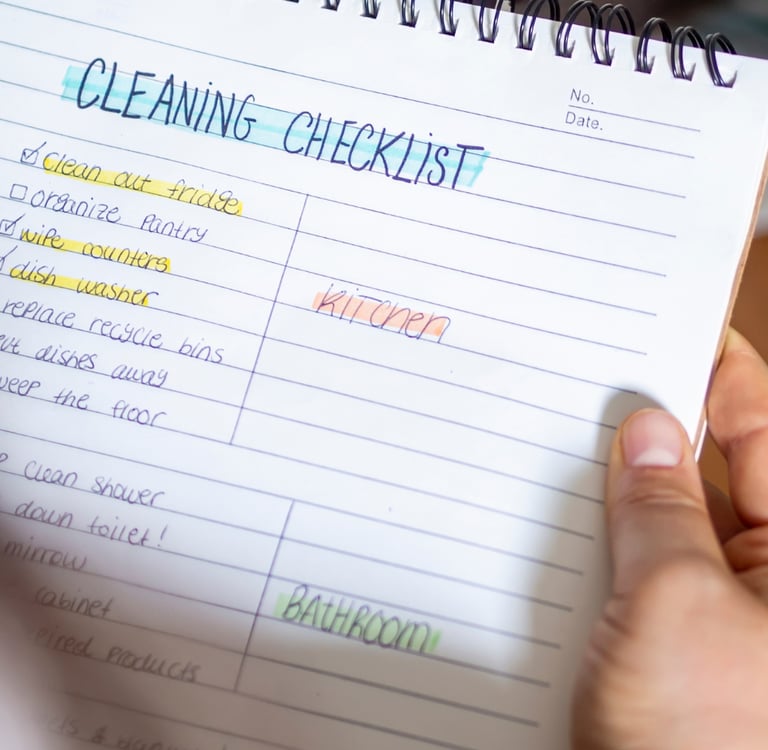 No.
Date.
CLEANING CHECKLIST
Clean out fridge
organize Pantry
wipe counters
dish washer
replace recycle bins
dishes away
the floor
Kitchen
clean shower
down toilet!
mirrow
cabinet
products
BATHROOM